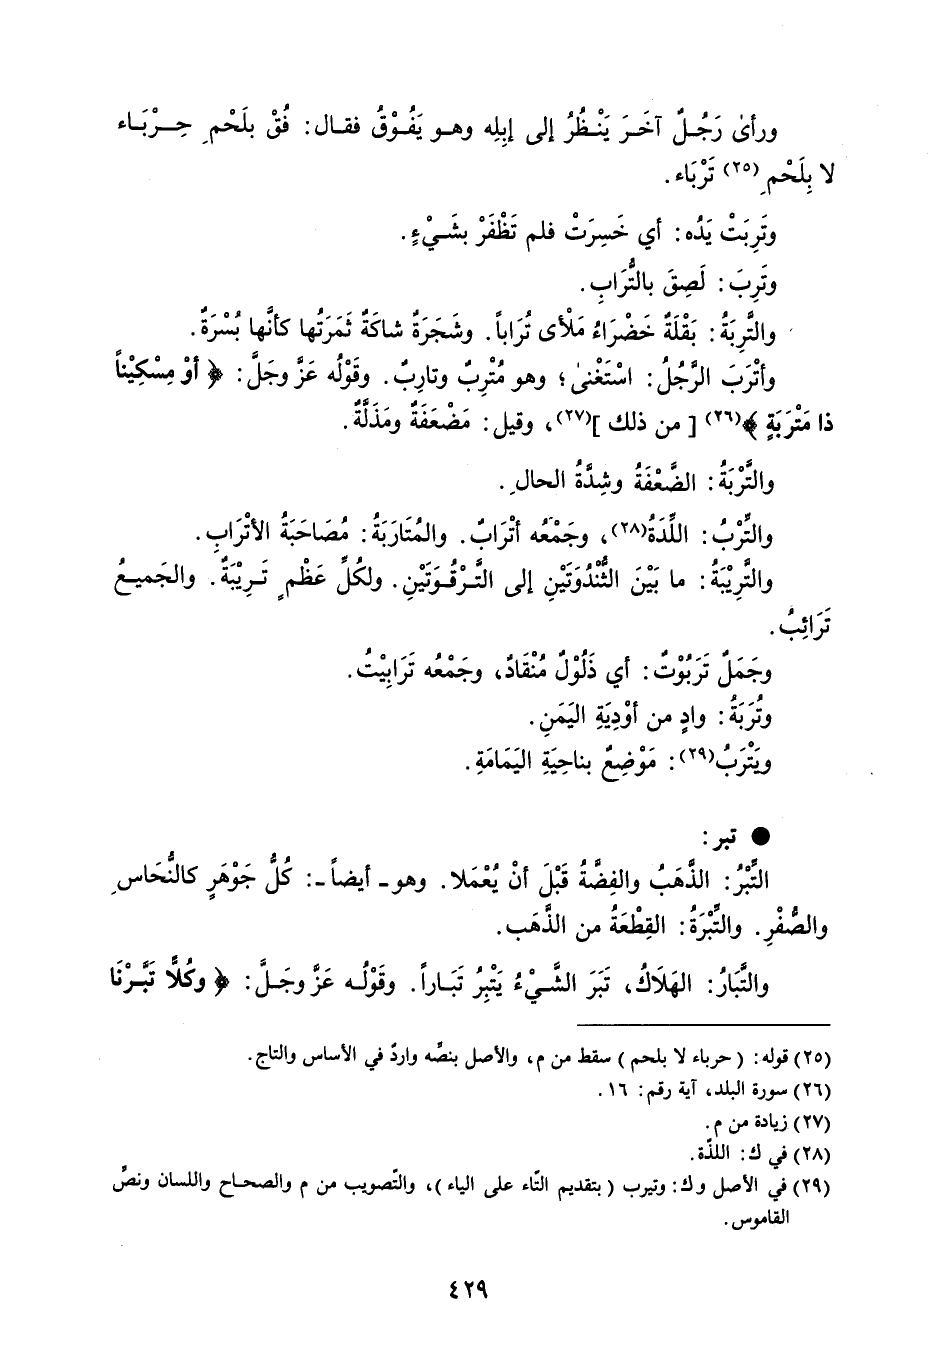 ورأىٰ رَجُلٌ آخَرَ يَنْظُرُ إلى إبِلِه وهو يَفُوْقُ فقال: فُقْ بلَحْمِ حِرْبَاء
لا بِلَحْمِ(٢٥) تَرْبَاء.
وتَرِبَتْ يَدُه: أي خَسِرَتْ فلم تَظْفَرْ بشَيْءٍ.
وتَرِبَ: لَصِقَ بالتُّرَابِ.
والتَّرِبَةُ: بَقْلَةٌ خَضْرَاءُ مَلْأى تُرَاباً. وشَجَرَةٌ شاكَةٌ ثَمَرَتُها كأنَّها بُسْرَةٌ.
وأتْرَبَ الرَّجُلُ: اسْتَغْنىٰ؛ وهو مُتْرِبٌ وتارِبٌ. وقَوْلُه عَزَّ وجَلَّ: ﴿ أوْ مِسْكِيْناً
ذا مَتْرَبَةٍ ﴾(٢٦) [ من ذلك ](٢٧)، وقيل: مَضْعَفَةٌ ومَذَلَّةٌ.
والتُّرْبَةُ: الضَّعْفَةُ وشِدَّةُ الحالِ.
والتِّرْبُ: اللِّدَةُ(٢٨)، وجَمْعُه أتْرَابٌ. والمُتَارَبَةُ: مُصَاحَبَةُ الأتْرَابِ.
والتَّرِيْبَةُ: ما بَيْنَ الثُّنْدُوَتَيْنِ إلى التَّرْقُوَتَيْنِ. ولكُلِّ عَظْمٍ تَرِيْبَةٌ. والجَمِيعُ
تَرَائِبُ.
وجَمَلٌ تَرَبُوْتٌ: أي ذَلُوْلٌ مُنْقَادٌ، وجَمْعُه تَرَابِيْتُ.
وتُرَبَةُ: وادٍ من أوْدِيَةِ اليَمَنِ.
ويَتْرَبُ(٢٩): مَوْضِعٌ بناحِيَةِ اليَمَامَةِ.
● تبر:
التِّبْرُ: الذَّهَبُ والفِضَّةُ قَبْلَ أنْ يُعْمَلا. وهو ـ أيضاً ـ: كُلُّ جَوْهَرٍ كالنُّحَاسِ
والصُّفْرِ. والتِّبْرَةُ: القِطْعَةُ من الذَّهَبِ.
والتَّبَارُ: الهَلَاكُ، تَبَرَ الشَّيْءُ يَتْبِرُ تَبَاراً. وقَوْلُه عَزَّ وجَلَّ: ﴿ وكُلًّا تَبَّرْنَا
(٢٥) قوله: ( حرباء لا بلحم ) سقط من م، والأصل بنصّه واردٌ في الأساس والتاج.
(٢٦) سورة البلد، آية رقم: ١٦.
(٢٧) زيادة من م.
(٢٨) في ك: اللذّة.
(٢٩) في الأصل وك: وتيرب ( بتقديم التّاء على الياء )، والتّصويب من م والصحاح واللسان ونصِّ
القاموس.
٤٢٩